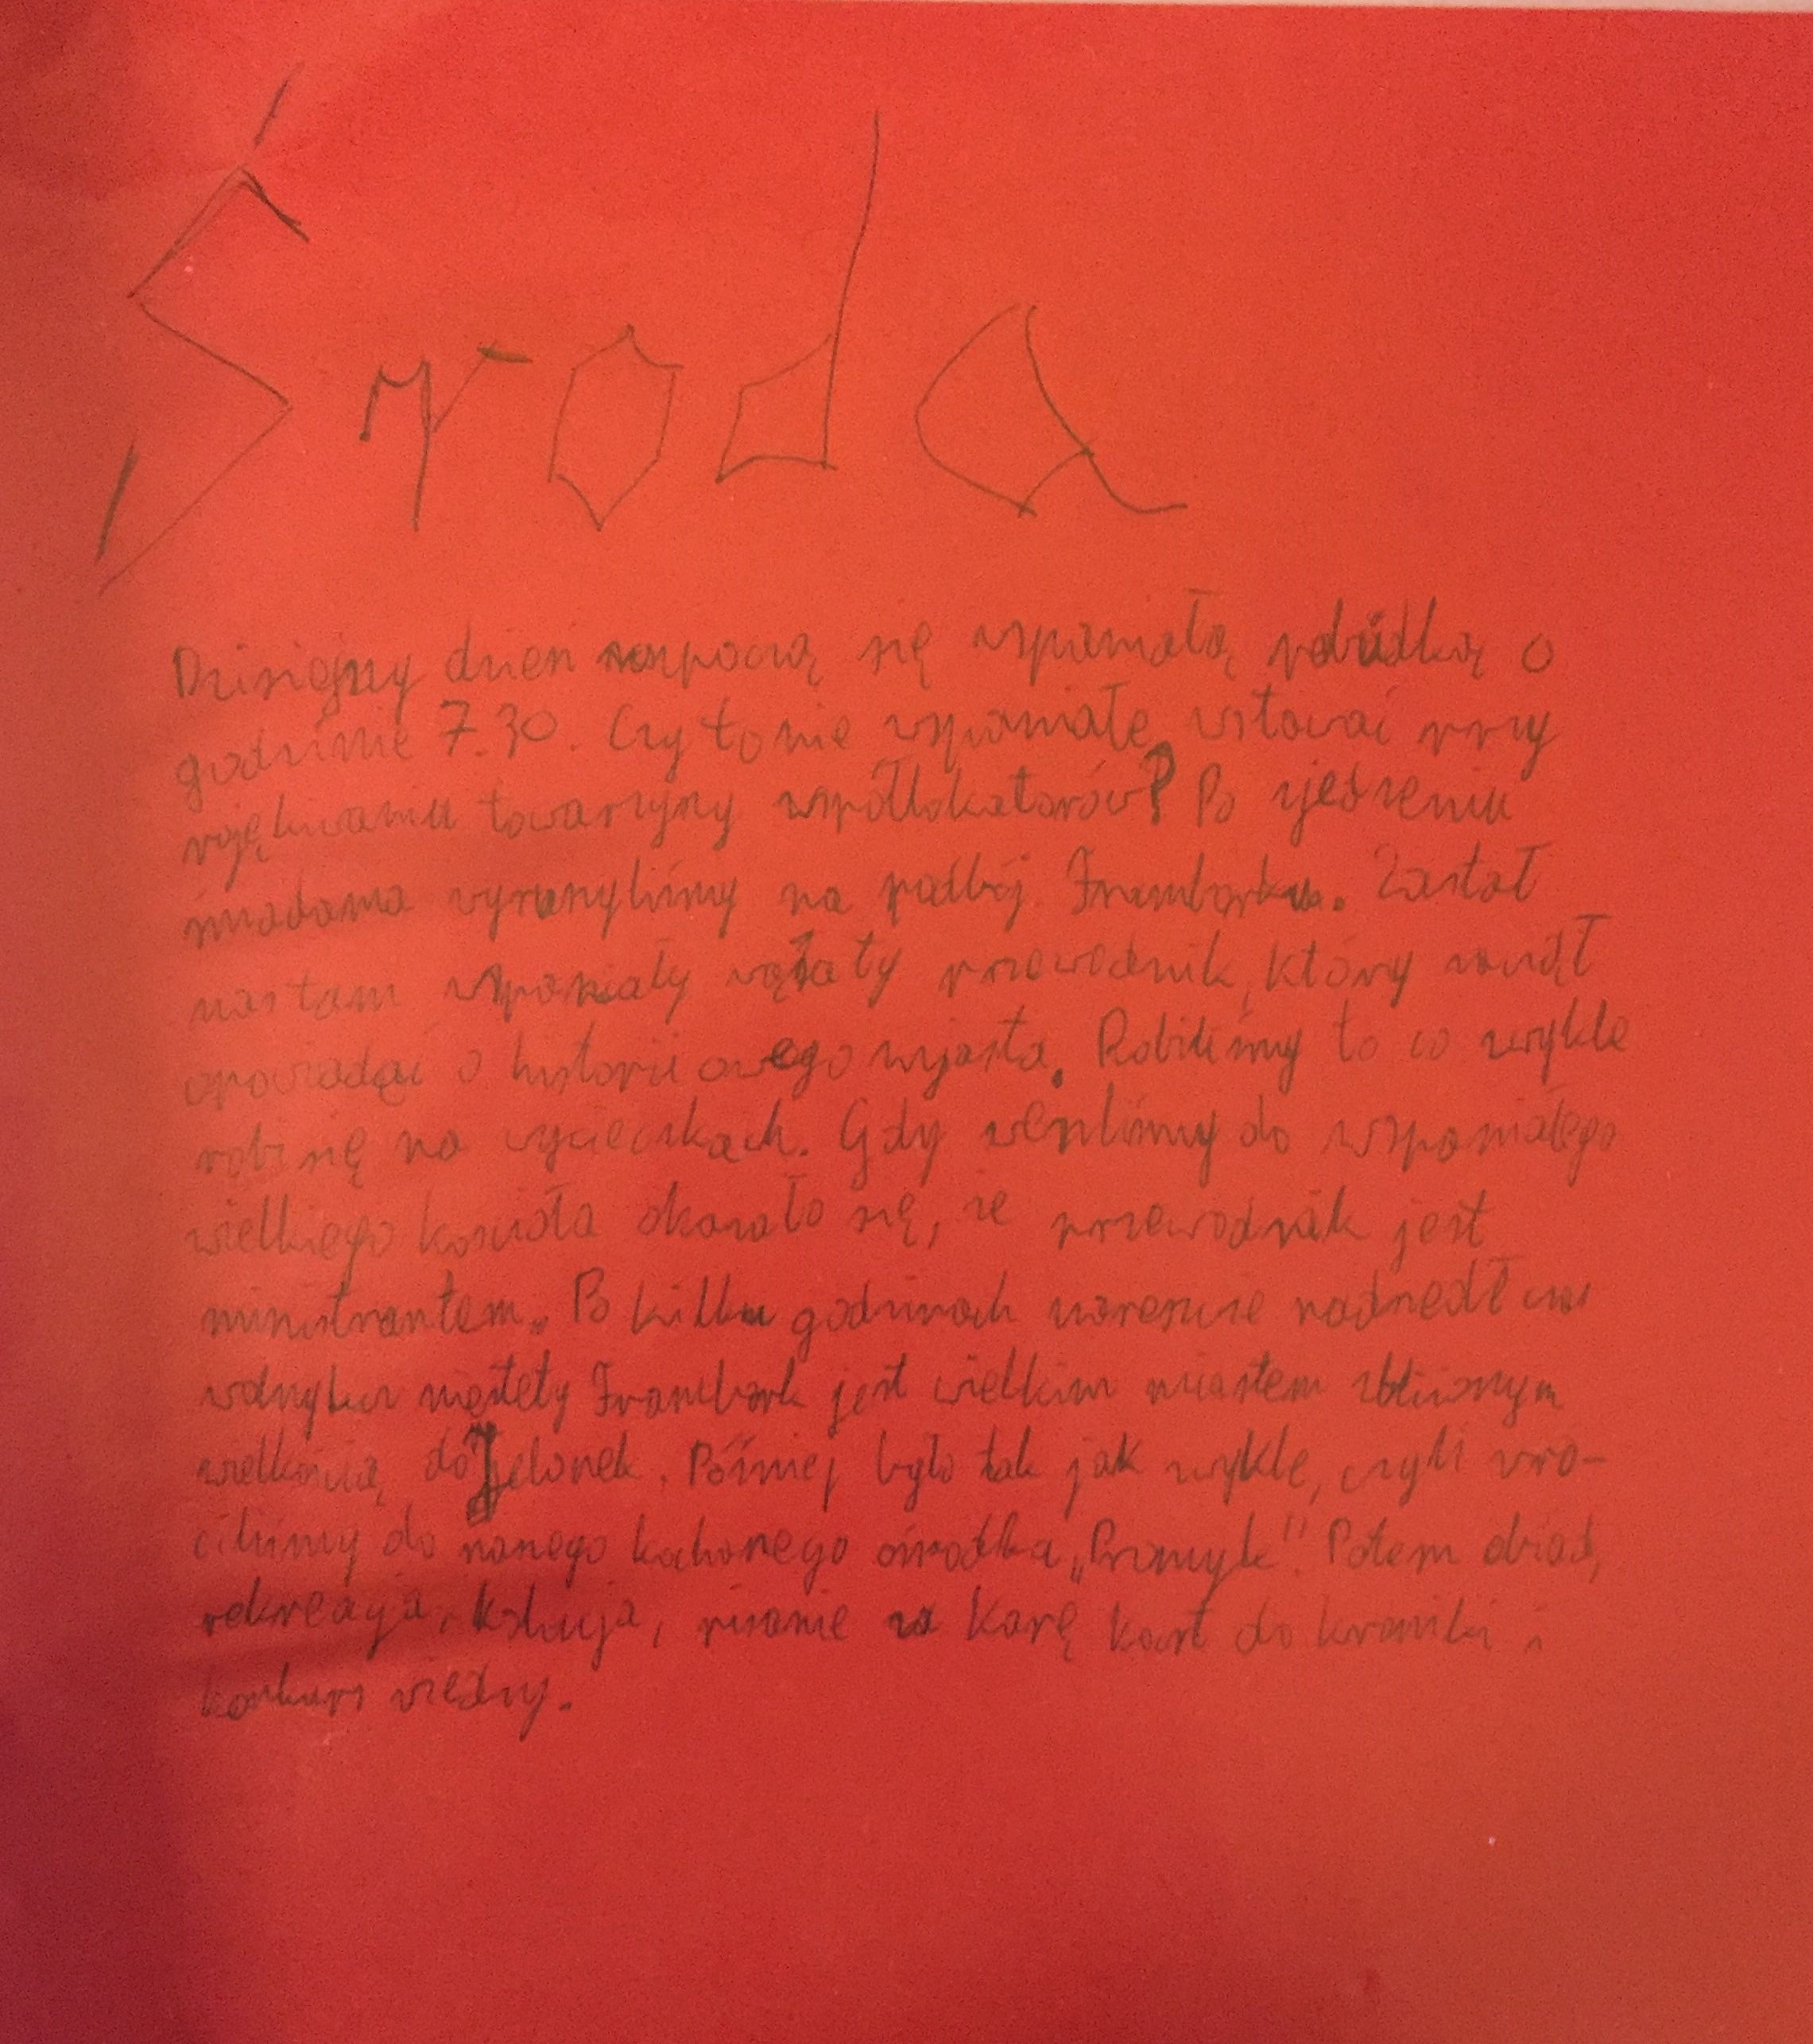 Środa
Dzisiejszy dzień rozpoczą się wspaniałą pobudką o
godzinie 7.30. Czy to nie wspaniałe, wstawać przy
pojękiwaniu towarzyszy współlokatorów? Po zjedzeniu
śniadania wyruszyliśmy na podbój Framborku. Zastał
nas tam wspaniały wąsaty przewodnik, który zaczął
opowiadać o historii owego mjasta. Robiliśmy to co zwykle
robi się na wycieczkach. Gdy weszliśmy do wspaniałego
wielkiego kościoła okazało się, że przewodnik jest
ministrantem. Po kilku godzinach nareszcie nadszedł czas
wolny lecz niestety Frambork jest wielkim miastem zbliżonym
wielkością do Jelonek. Później było tak jak zwykle, czyli wró-
ciliśmy do naszego kochanego ośrodka „Promyk" Potem obiad,
rekreacja, kolacja, pisanie za karę kart do kroniki i
konkurs wiedzy.